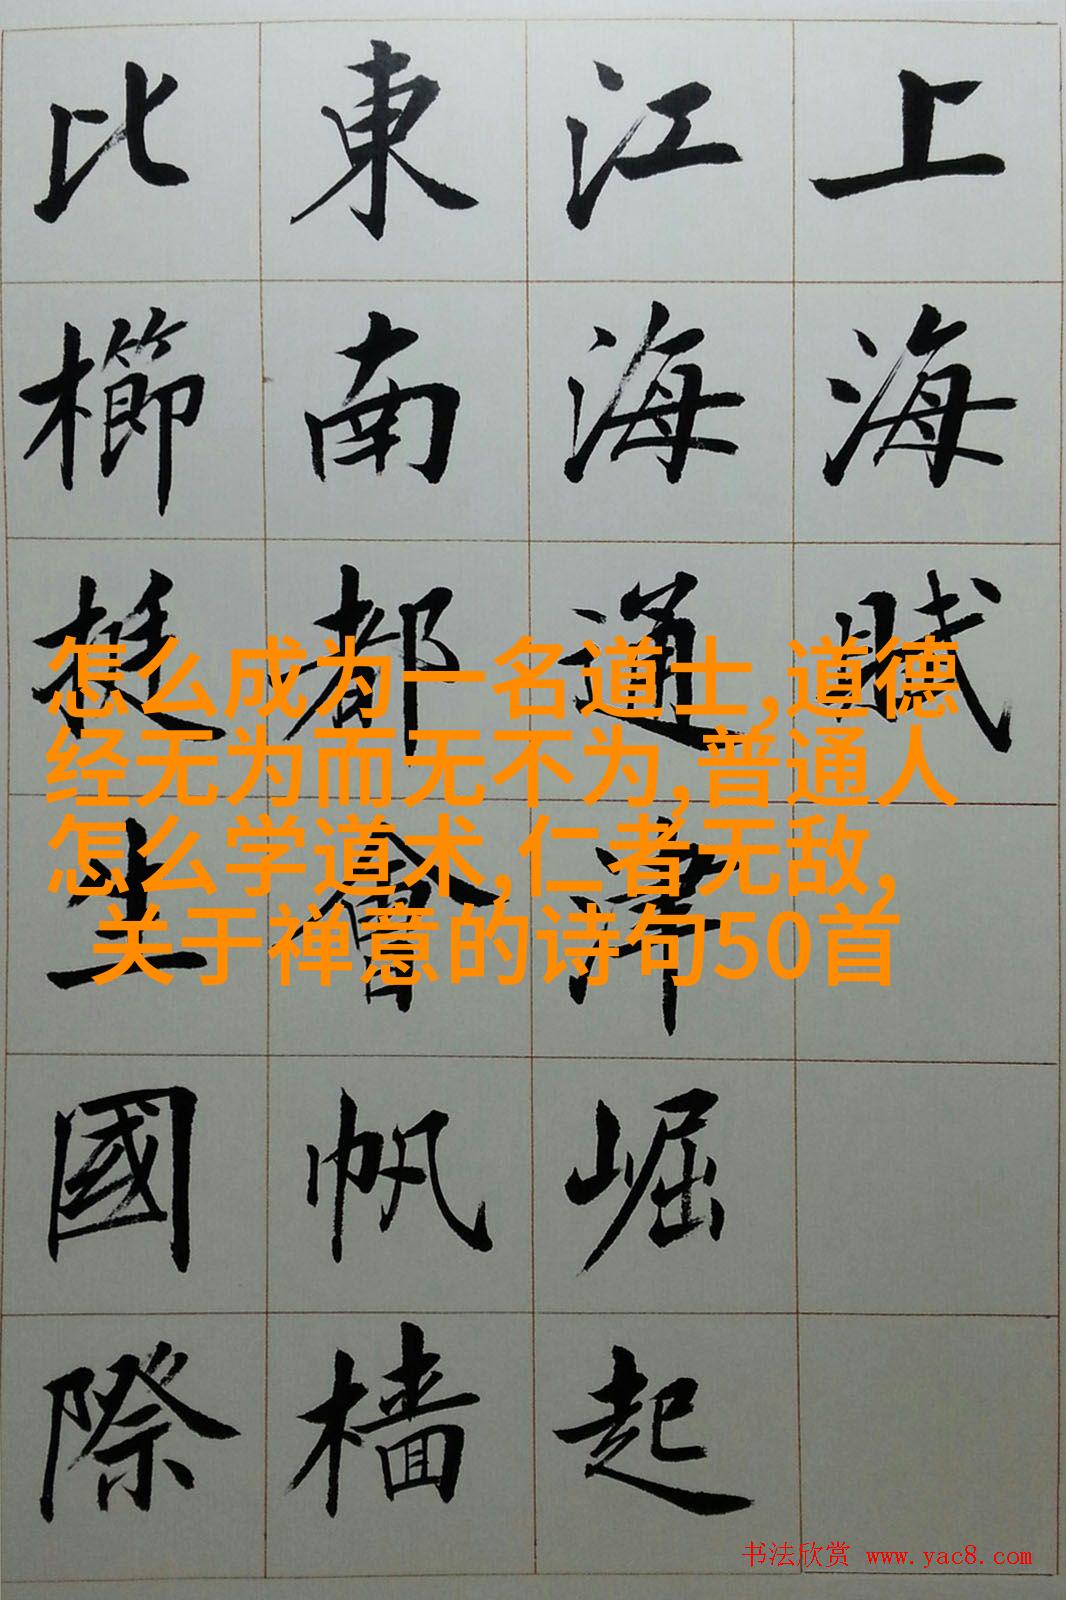 上海賦
江海通津崛起
東南都會帆樯
比櫛挺生國際
怎么成为一名道士,道德
经无为而无不为,普通人
怎么学道术,仁者无敌,
关于禅意的诗句50首
书法欣赏 www.yac8.com